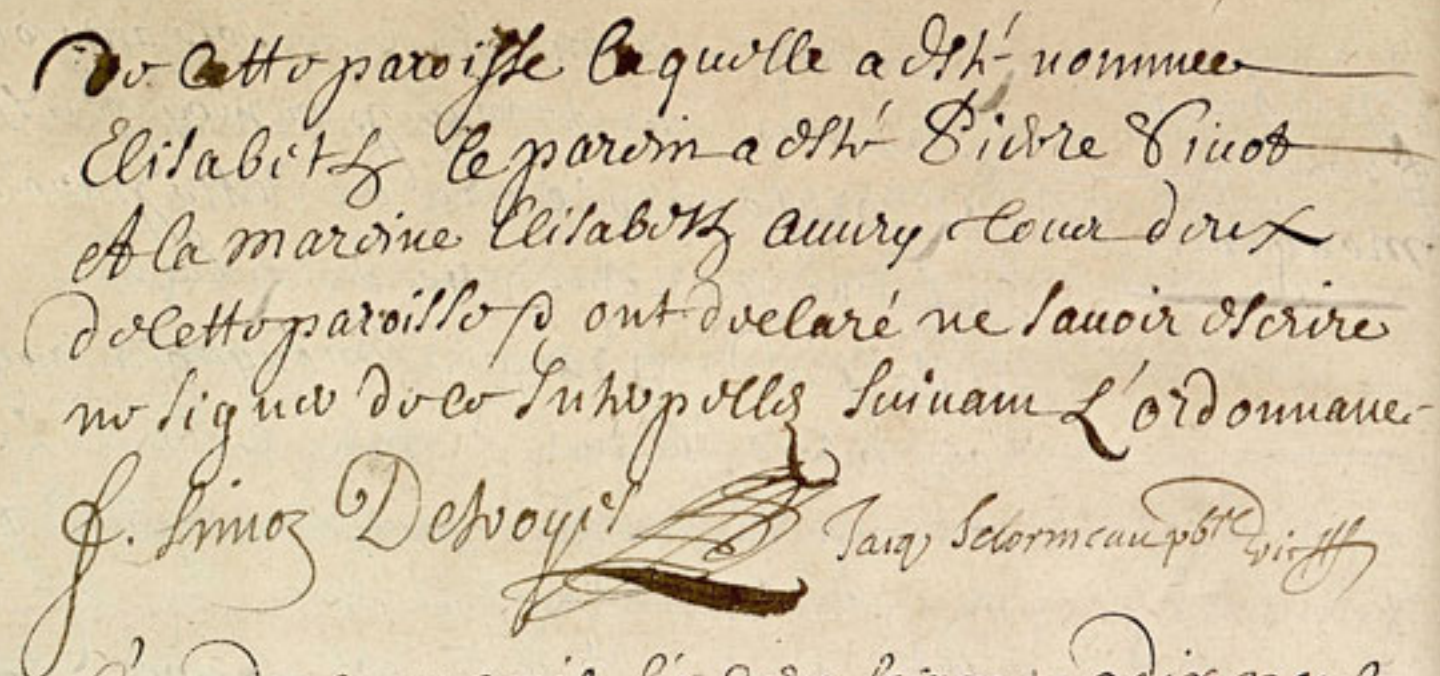 de cette paroisse laquelle a esté nommee
Elisabeth le parein a esté Pierre Pinot
et la mareine Elisabeth Aumry tous deux
de cette paroisse ont declaré ne sauoir escrire
ne signer de ce Interpelles suiuant L'ordonnance
f. simoz Desvoyes Jacq Delormeau pbre vic